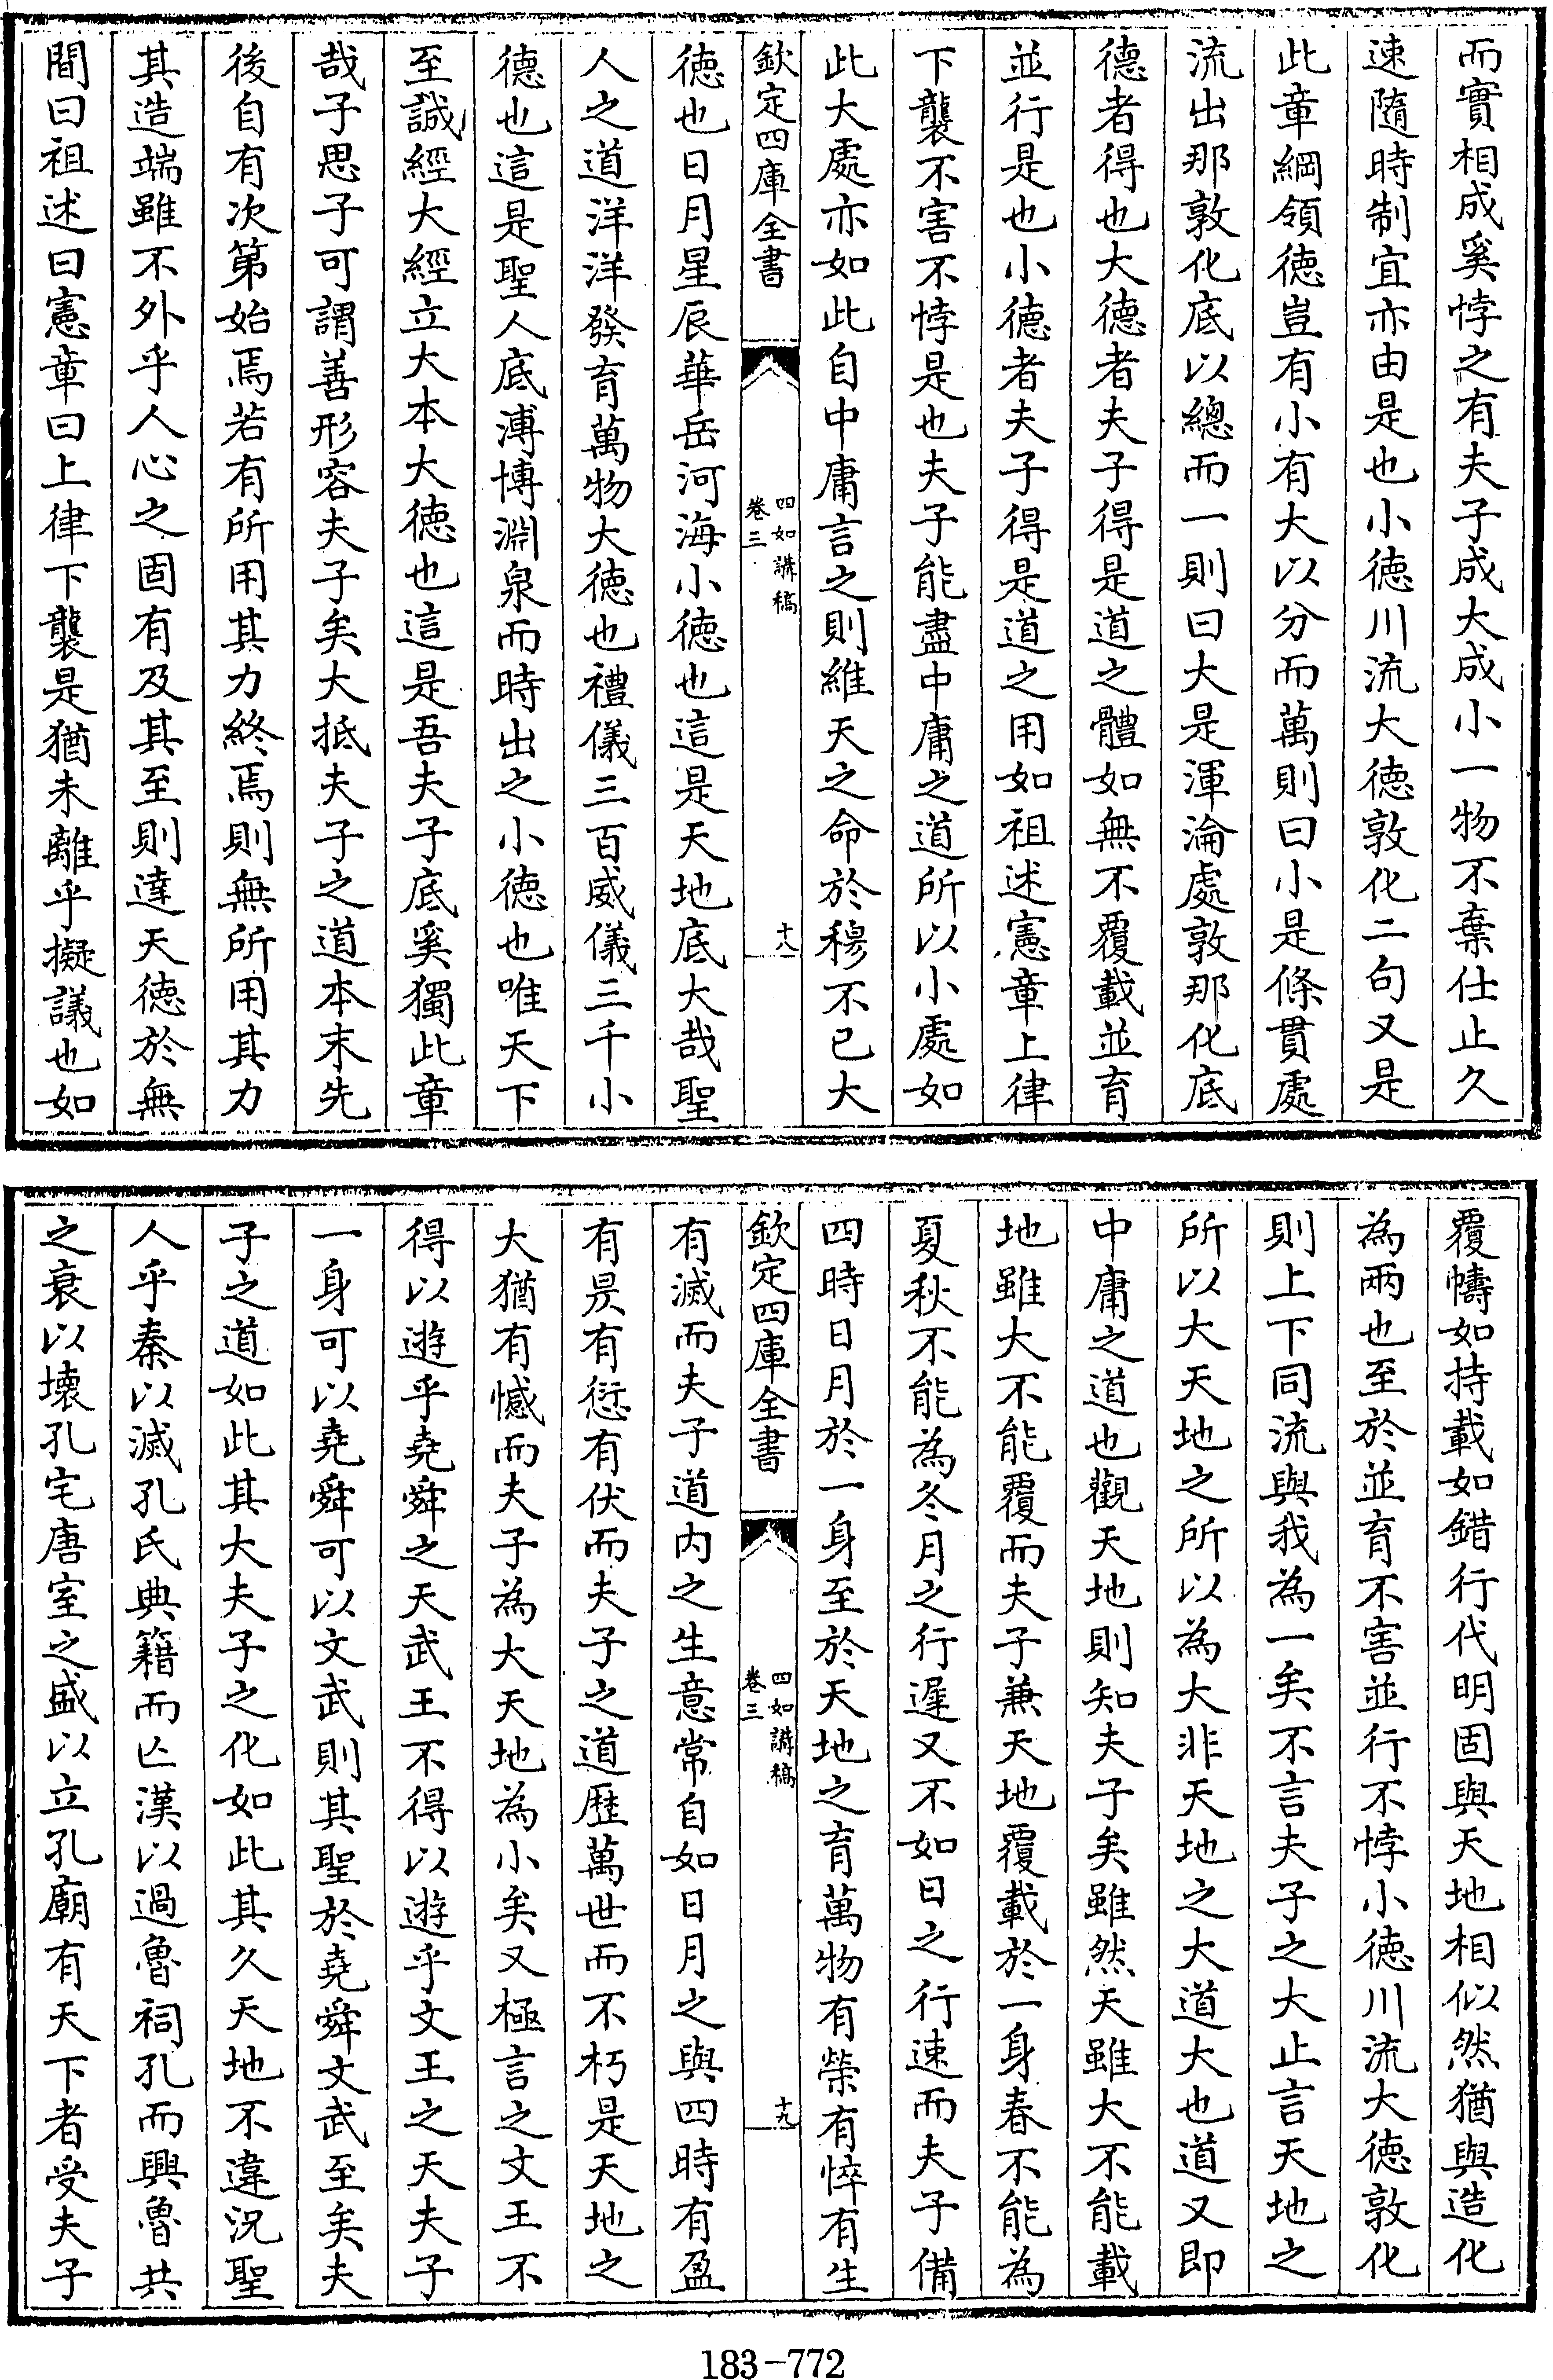 而實相成奚悖之有夫子成大成小一物不棄仕止久
速隨時制宜亦由是也小徳川流大徳敦化二句又是
此章綱領徳豈有小有大以分而萬則曰小是條貫處
流出那敦化底以總而一則曰大是渾淪處敦那化底
德者得也大德者夫子得是道之體如無不覆載並育
並行是也小德者夫子得是道之用如祖述憲章上律
下襲不害不悖是也夫子能盡中庸之道所以小處如
此大處亦如此自中庸言之則維天之命於穆不已大
欽定四庫全書
四如講稿
卷三
十八
徳也日月星辰華岳河海小德也這是天地底大哉聖
人之道洋洋發育萬物大德也禮儀三百威儀三千小
德也這是聖人底溥博淵泉而時出之小徳也唯天下
至誠經大經立大本大徳也這是吾夫子底奚獨此章
哉子思子可謂善形容夫子矣大抵夫子之道本末先
後自有次第始焉若有所用其力終焉則無所用其力
其造端雖不外乎人心之固有及其至則達天徳於無
間曰祖述曰憲章曰上律下襲是猶未離乎擬議也如
覆幬如持載如錯行代明固與天地相似然猶與造化
為兩也至於並育不害並行不悖小徳川流大徳敦化
則上下同流與我為一矣不言夫子之大止言天地之
所以大天地之所以為大非天地之大道大也道又即
中庸之道也觀天地則知夫子矣雖然天雖大不能載
地雖大不能覆而夫子兼天地覆載於一身春不能為
夏秋不能為冬月之行遲又不如日之行速而夫子備
四時日月於一身至於天地之育萬物有榮有悴有生
欽定四庫全書
四如講稿
卷三
十九
有滅而夫子道内之生意常自如日月之與四時有盈
有昃有愆有伏而夫子之道歴萬世而不朽是天地之
大猶有憾而夫子為大天地為小矣又極言之文王不
得以遊乎堯舜之天武王不得以遊乎文王之天夫子
一身可以堯舜可以文武則其聖於堯舜文武至矣夫
子之道如此其大夫子之化如此其久天地不違況聖
人乎秦以滅孔氏典籍而亾漢以過魯祠孔而興魯共
之衰以壊孔宅唐室之盛以立孔廟有天下者受夫子
183-772